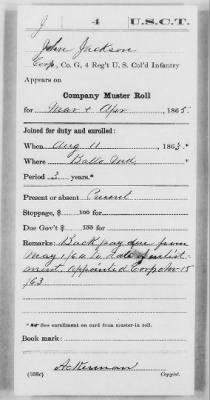 J 4 U.S.C.T.
John Jackson
Corp, Co. G, 4 Reg't U. S. Col'd Infantry
Appears on
Company Muster Roll
for Mar & Apr, 1865.
Joined for duty and enrolled:
When Aug 11, 1863.*
Where Balto Md
Period 3 years.*
Present or absent Present
Stoppage, $ 100 for
Due Gov't $ 100 for
Remarks: Back pay due from
May 1/64 to date of enlist-
ment. Appointed Corp 15
/63
* See enrollment on card from muster-in roll.
Book mark:
Ackerman
(358c) Copyist.